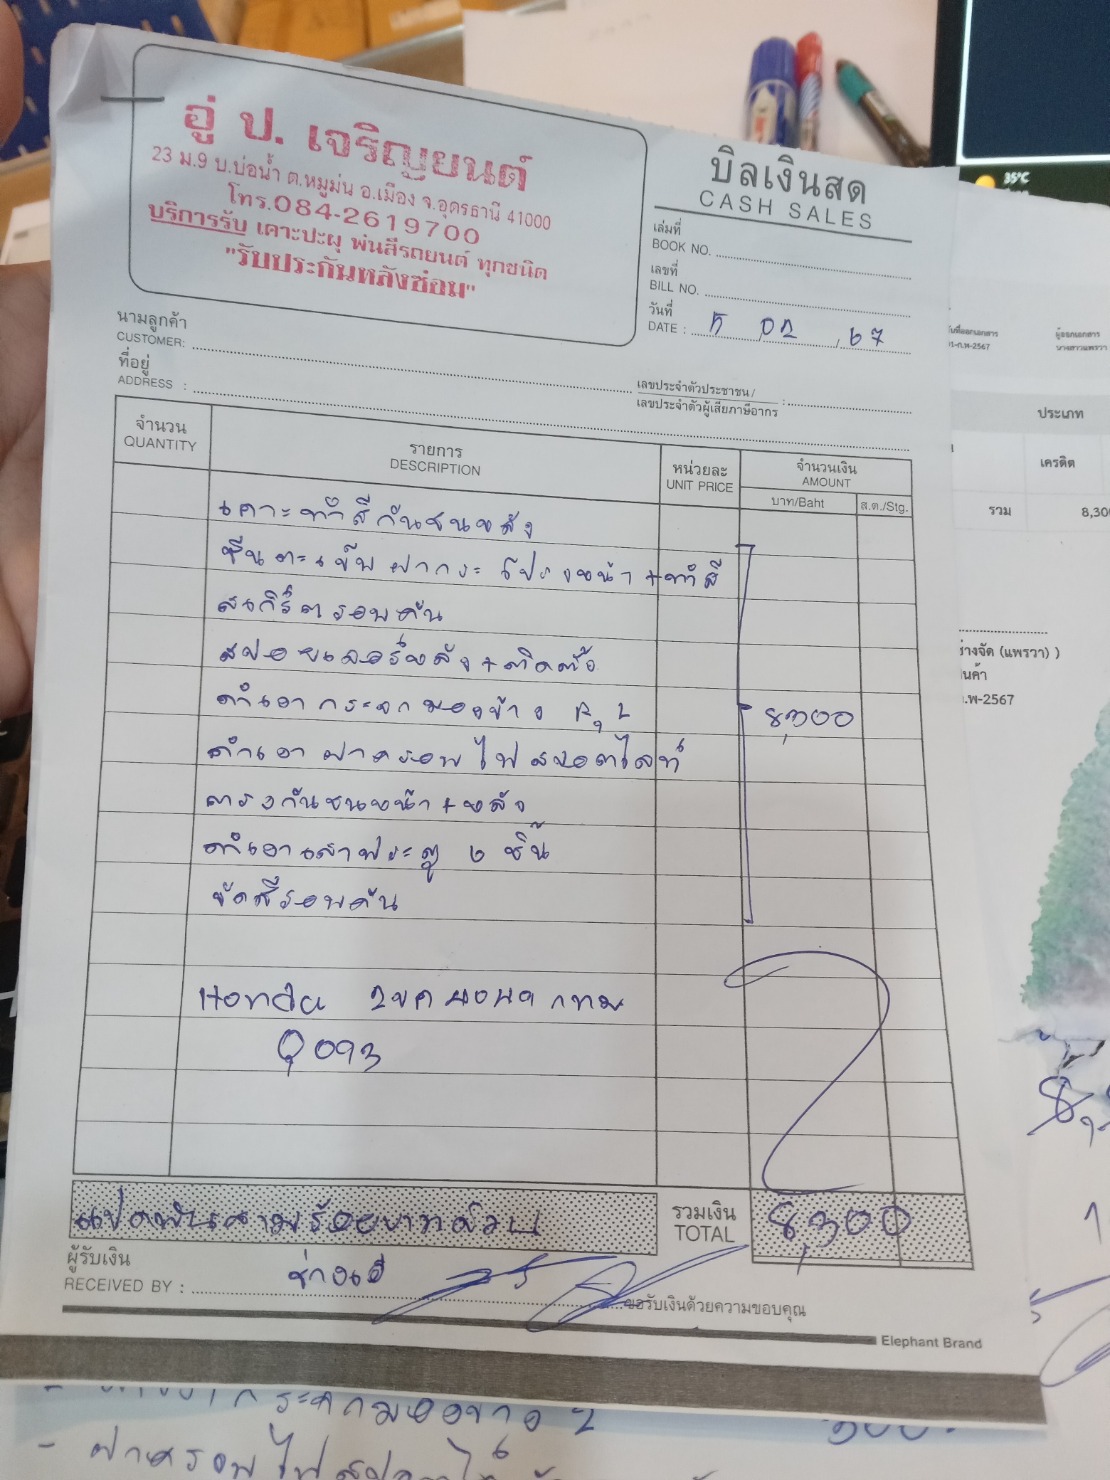 อู่ ป. เจริญยนต์
23 ม.9 บ.บ่อน้ำ ต.หมูม่น อ.เมือง จ.อุดรธานี 41000
โทร.084-2619700
บริการรับ เคาะปะผุ พ่นสีรถยนต์ ทุกชนิด
"รับประกันหลังซ่อม"
บิลเงินสด
CASH SALES
เล่มที่
BOOK NO.
เลขที่
BILL NO.
วันที่
DATE : 5 02 67
นามลูกค้า
CUSTOMER:
ที่อยู่
ADDRESS :
เลขประจำตัวประชาชน/
เลขประจำตัวผู้เสียภาษีอากร
จำนวน
QUANTITY
รายการ
DESCRIPTION
หน่วยละ
UNIT PRICE
จำนวนเงิน
AMOUNT
บาท/Baht
ส.ต./Stg.
เคาะทำสีกันชนหลัง
ฝากระโปรงหน้า+ทำสี
สเกิร์ตรอบคัน
สปอยเลอร์หลัง+ติดตั้ง
ทำเงากระจกมองข้าง R, L
8,300
ทำเงาฝาครอบไฟสปอตไลท์
ตรงกันชนหน้า+หลัง
ทำเงาเสาประตู 6 ชิ้น
ขัดสีรอบคัน
Honda กทม
9093
แปดพันสามร้อยบาทถ้วน
รวมเงิน
TOTAL
8,300
ผู้รับเงิน
RECEIVED BY :
ขอรับเงินด้วยความขอบคุณ
Elephant Brand
35°C
ผู้ออกเอกสาร
ก.พ-2567
ประเภท
เครดิต
รวม
8,30
ช่างจัด (แพรวา) )
.พ-2567
กระจกมองข้าง 2
- ฝาครอบไฟ